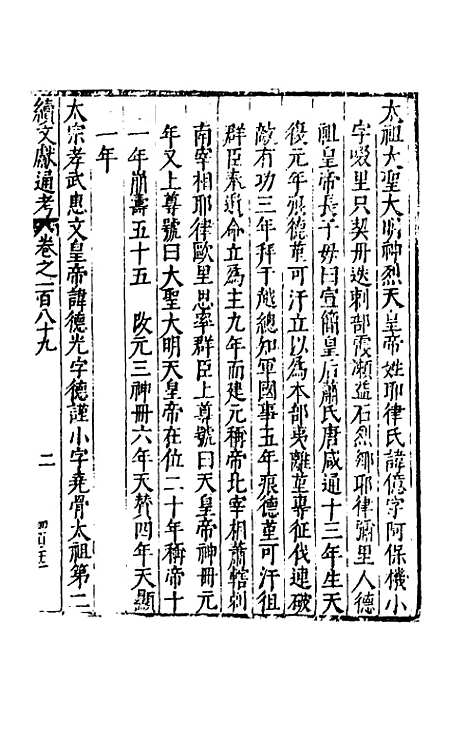 太祖大聖大明神烈天皇帝姓耶律氏諱億字阿保機小
字啜里只契丹迭剌部霞瀬益石烈鄉耶律彌里人德
祖皇帝長子母曰宣簡皇后蕭氏唐咸通十三年生天
復元年痕德菫可汗立以為本部夷离菫專征伐連破
敵有功三年拜于越總知軍國事五年痕德菫可汗徂
群臣奉遺命立為主九年而建元稱帝北宰相蕭轄剌
南宰相耶律歐里思率群臣上尊號曰天皇帝神冊元
年又上尊號曰大聖大明天皇帝在位二十年稱帝十
一年崩壽五十五 改元三神冊六年天贊四年天顯
一年
太宗孝武惠文皇帝諱德光字德謹小字堯骨太祖第二
續文獻通考 卷之一百八十九 二